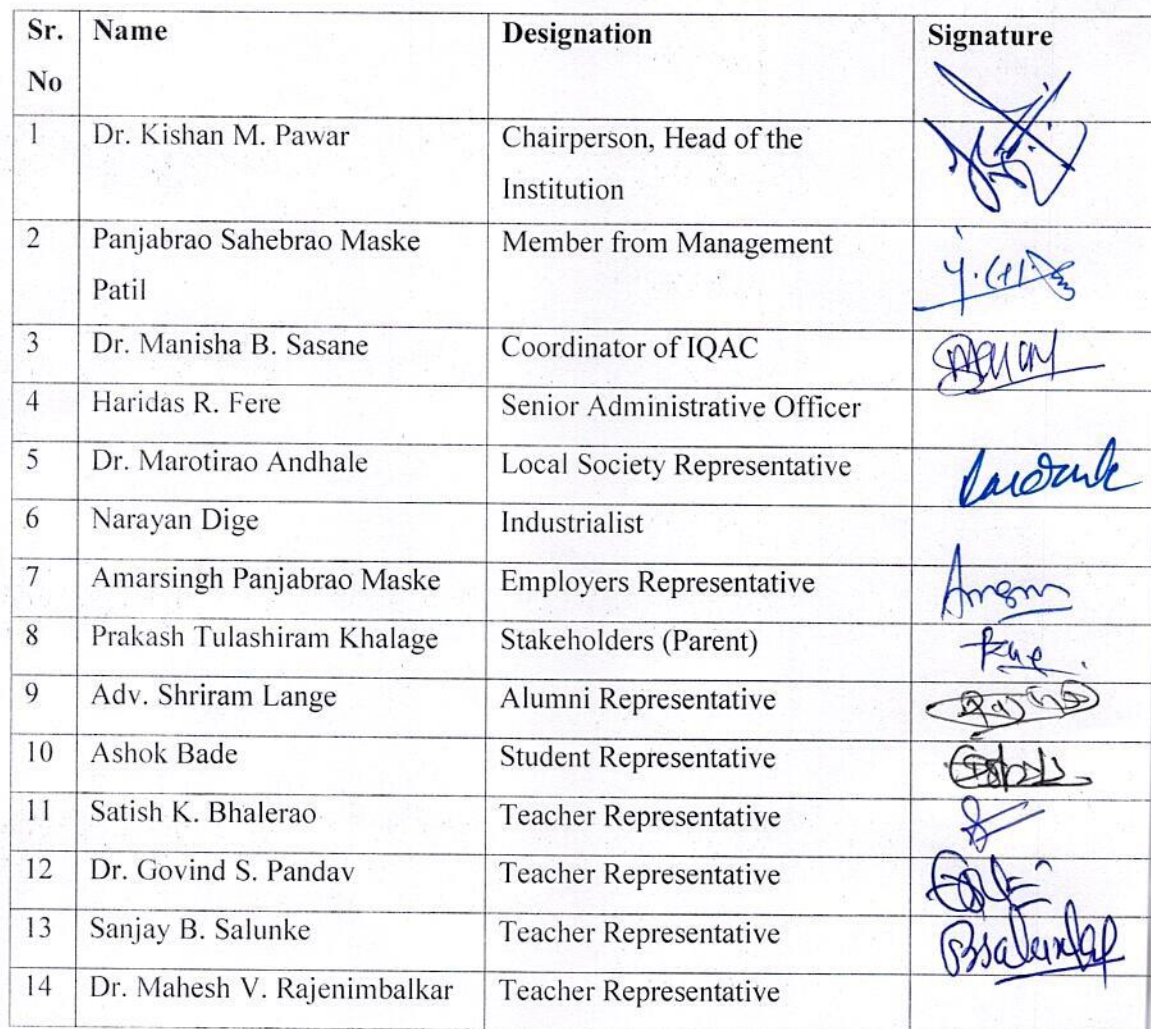 Sr. No Name Designation Signature
1 Dr. Kishan M. Pawar Chairperson, Head of the Institution
2 Panjabrao Sahebrao Maske Patil Member from Management
3 Dr. Manisha B. Sasane Coordinator of IQAC
4 Haridas R. Fere Senior Administrative Officer
5 Dr. Marotirao Andhale Local Society Representative
6 Narayan Dige Industrialist
7 Amarsingh Panjabrao Maske Employers Representative
8 Prakash Tulashiram Khalage Stakeholders (Parent)
9 Adv. Shriram Lange Alumni Representative
10 Ashok Bade Student Representative
11 Satish K. Bhalerao Teacher Representative
12 Dr. Govind S. Pandav Teacher Representative
13 Sanjay B. Salunke Teacher Representative
14 Dr. Mahesh V. Rajenimbalkar Teacher Representative